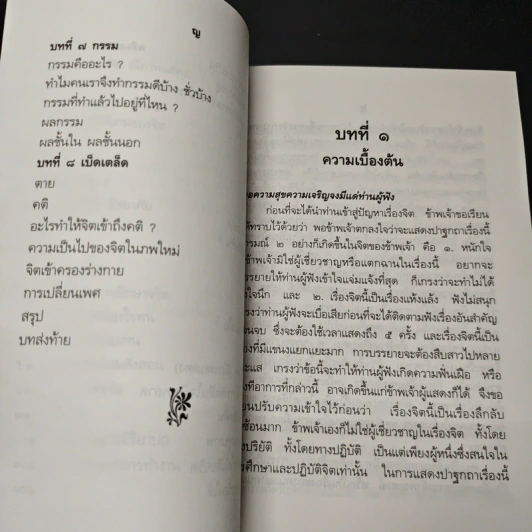 ญ
บทที่ ๗ กรรม
กรรมคืออะไร ?
ทำไมคนเราจึงทำกรรมดีบ้าง ชั่วบ้าง
กรรมที่ทำแล้วไปอยู่ที่ไหน ?
ผลกรรม
ผลชั้นใน ผลชั้นนอก
บทที่ ๘ เบ็ดเตล็ด
ตาย
คติ
อะไรทำให้จิตเข้าถึงคติ ?
ความเป็นไปของจิตในภพใหม่
จิตเข้าครองร่างกาย
การเปลี่ยนเพศ
สรุป
บทส่งท้าย
บทที่ ๑
ความเบื้องต้น
ความสุขความเจริญจงมีแด่ท่านผู้ฟัง
ก่อนที่จะได้นำท่านเข้าสู่ปัญหาเรื่องจิต ข้าพเจ้าขอเรียน
ให้ทราบไว้ด้วยว่า พอข้าพเจ้าตกลงใจว่าจะแสดงปาฐกถาเรื่องนี้
อารมณ์ ๒ อย่างก็เกิดขึ้นในจิตของข้าพเจ้า คือ ๑. หนักใจ
ข้าพเจ้ามิใช่ผู้เชี่ยวชาญหรือแตกฉานในเรื่องนี้ อยากจะ
บรรยายให้ท่านผู้ฟังเข้าใจแจ่มแจ้งที่สุด ก็เกรงว่าจะทำไม่ได้
ใจนึก และ ๒. เรื่องจิตนี้เป็นเรื่องแห้งแล้ง ฟังไม่สนุก
เกรงว่าท่านผู้ฟังจะเบื่อเสียก่อนที่จะได้ติดตามฟังเรื่องอันสำคัญ
จนจบ ซึ่งจะต้องใช้เวลาแสดงถึง ๕ ครั้ง และเรื่องจิตนี้เป็น
ที่มีแขนงแยกแยะมาก การบรรยายจะต้องสืบสาวไปหลาย
แส เกรงว่าข้อนี้จะทำให้ท่านผู้ฟังเกิดความฟั่นเฝือ หรือ
อาการที่กล่าวนี้ อาจเกิดขึ้นแก่ข้าพเจ้าผู้แสดงก็ได้ จึงขอ
ปรับความเข้าใจไว้ก่อนว่า เรื่องจิตนี้เป็นเรื่องลึกลับ
ซ้อนมาก ข้าพเจ้าเองก็ไม่ใช่ผู้เชี่ยวชาญในเรื่องจิต ทั้งโดย
ปริยัติ ทั้งโดยทางปฏิบัติ เป็นแต่เพียงผู้หนึ่งซึ่งสนใจใน
ศึกษาและปฏิบัติจิตเท่านั้น ในการแสดงปาฐกถาเรื่องนี้